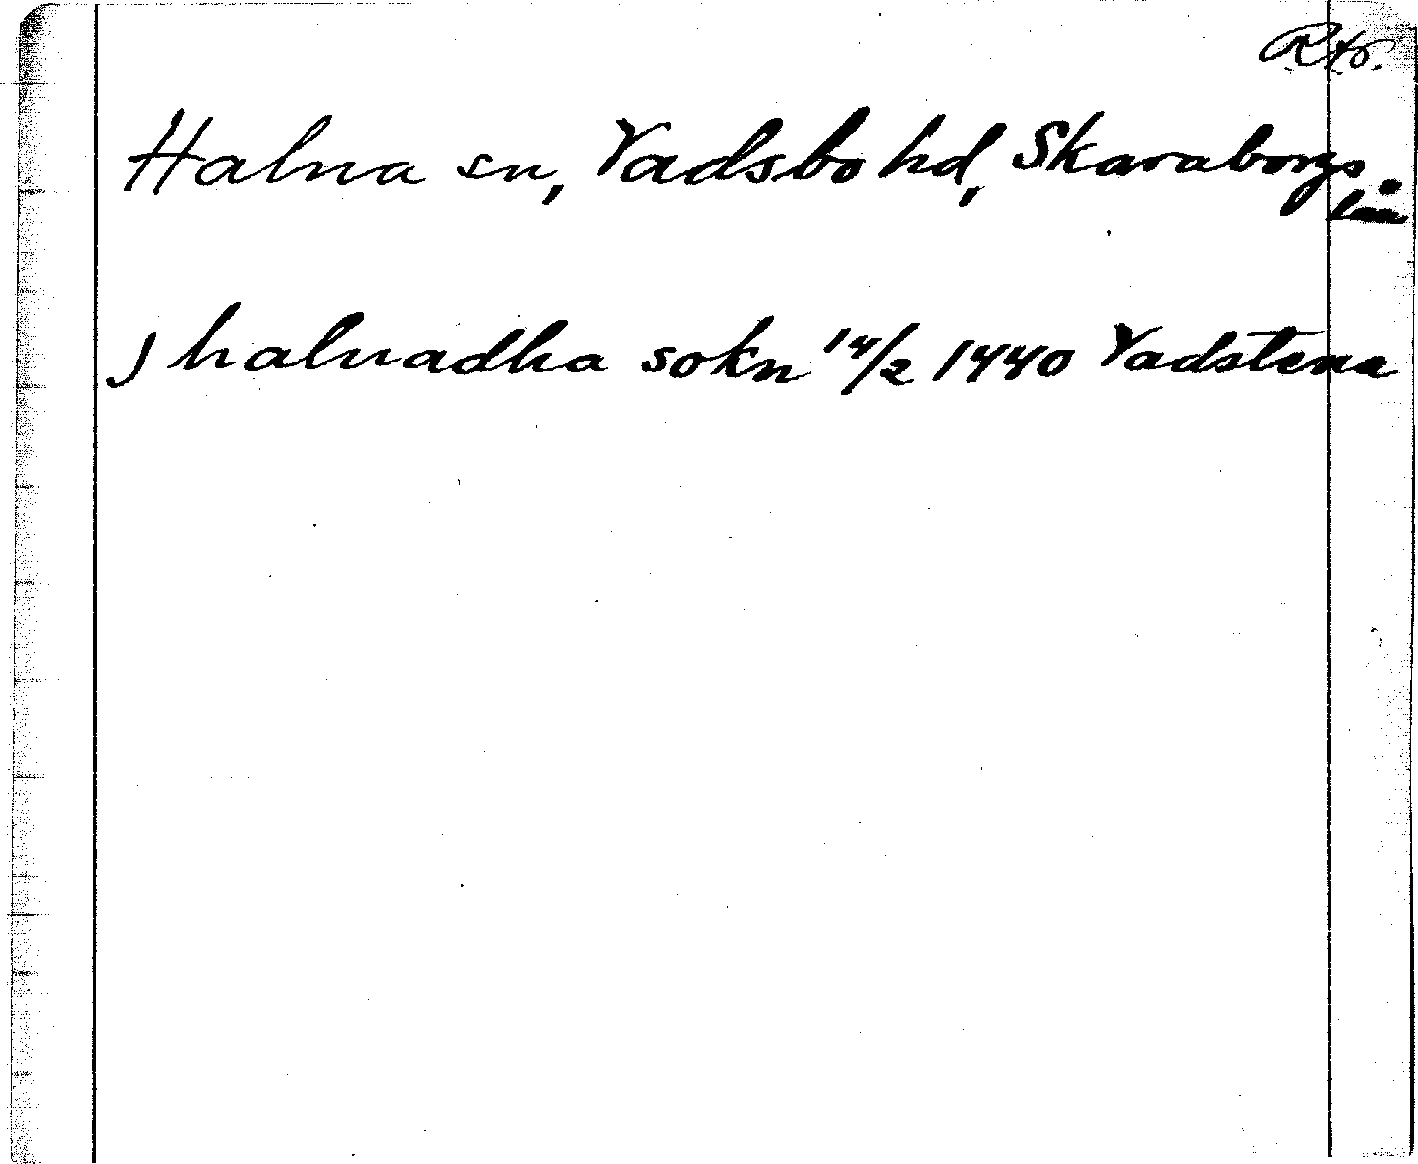 Rtr.
Halna sn, Vadsbo hd, Skaraborgs
län
J halnadha sokn 14/2 1440 Vadstena